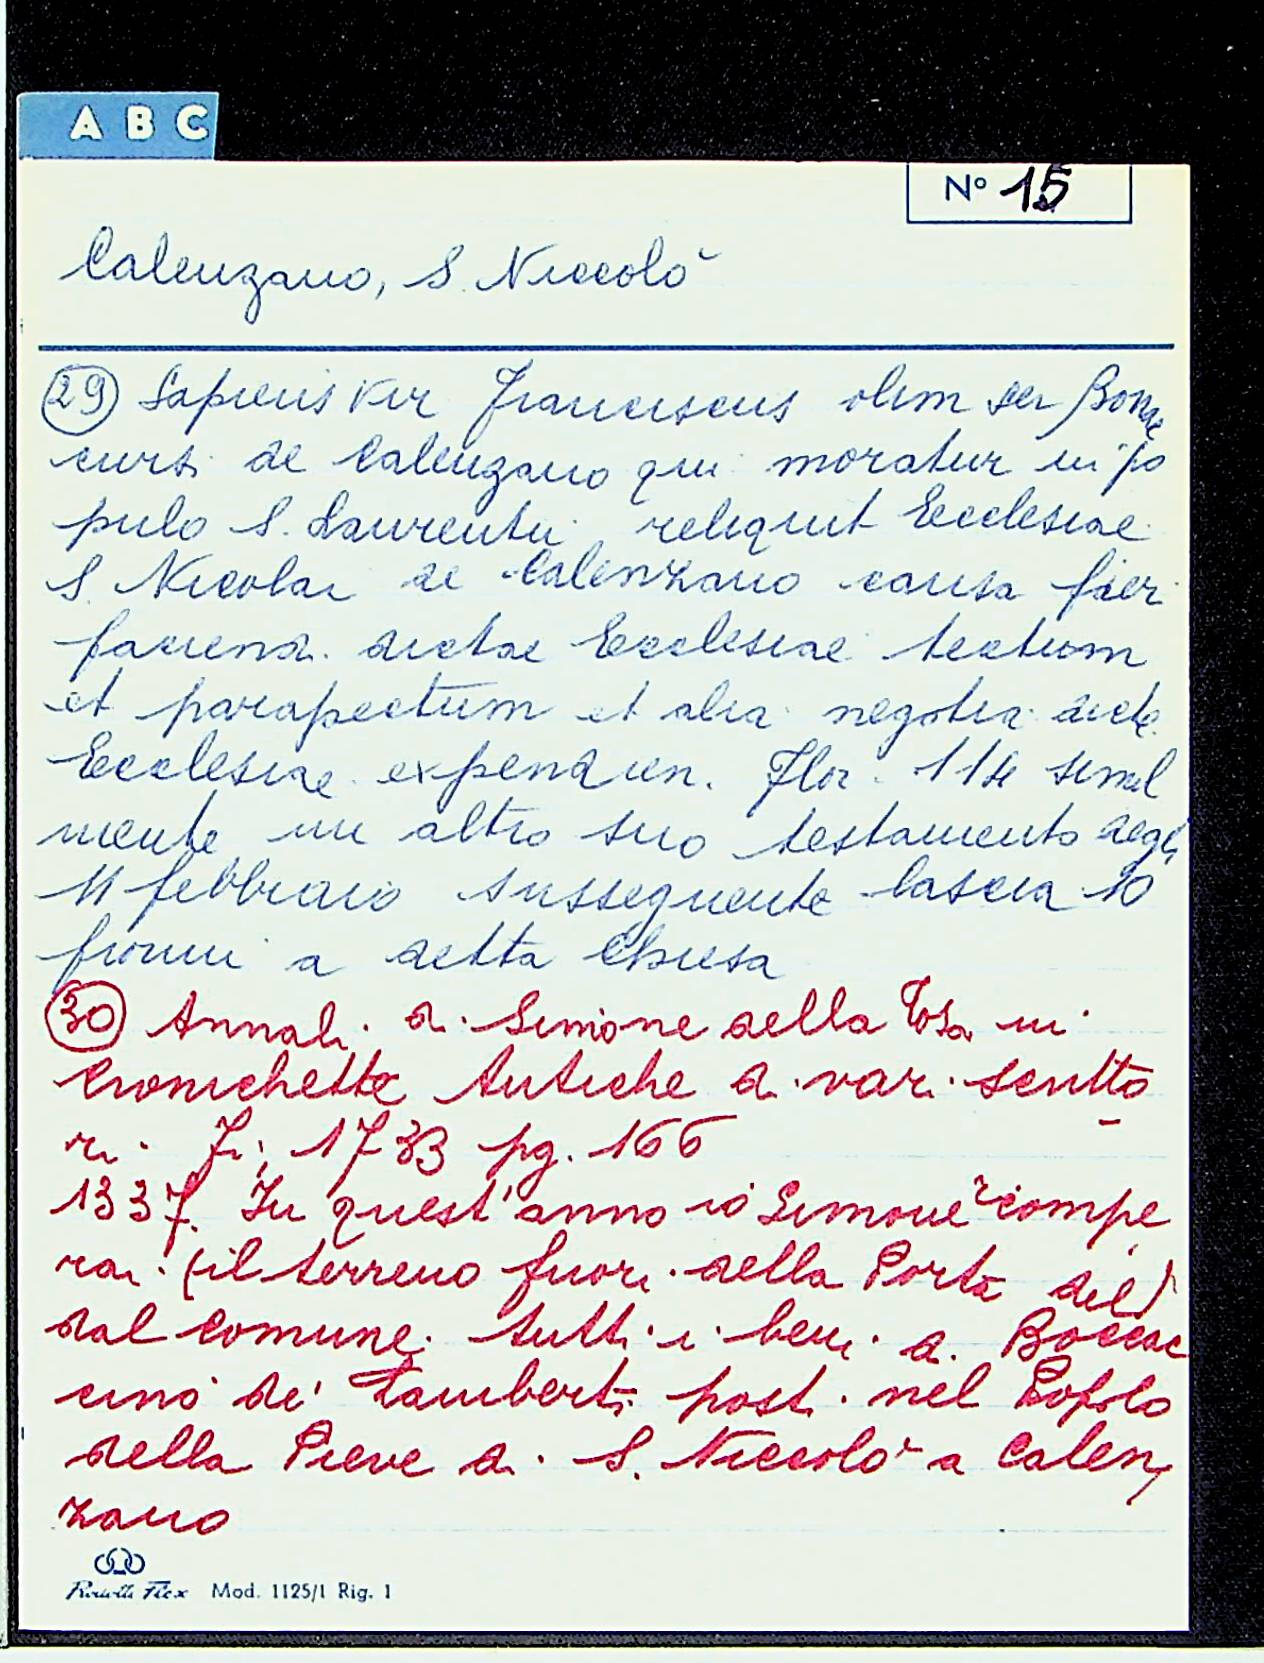 A B C
Nº 15
Calenzano, S. Niccolò
29 Sapiens Vir Franciscus olim ser Bonae
cursi de Calenzano qui moratur in po
pulo S. Laurentii reliquit Ecclesiae
S. Nicolai de Calenzano causa fieri
faciend. dictae Ecclesiae tectum
et parapectum et alia negotia dicte
Ecclesiae expendien. Flor. 114 simil
mente in altro suo testamento degli
11 febbraio susseguente lascia 10
fiorini a detta Chiesa
30 Annali di Simone della Tosa in
Cronichette Antiche di vari scritto
ri. Fi; 1733 pg. 166
1337. In quest'anno io Simone compe
rai (il terreno fuori della Porta del)
dal comune tutti i beni di Boccac
cino de' Lamberti posti nel Popolo
della Pieve di S. Niccolò a Calen,
zano
Mod. 1125/1 Rig. 1